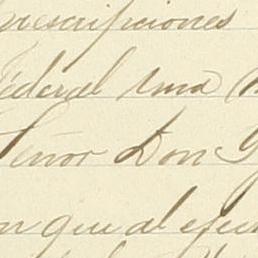 prescripciones
Federal una
Señor Don
en que al efec